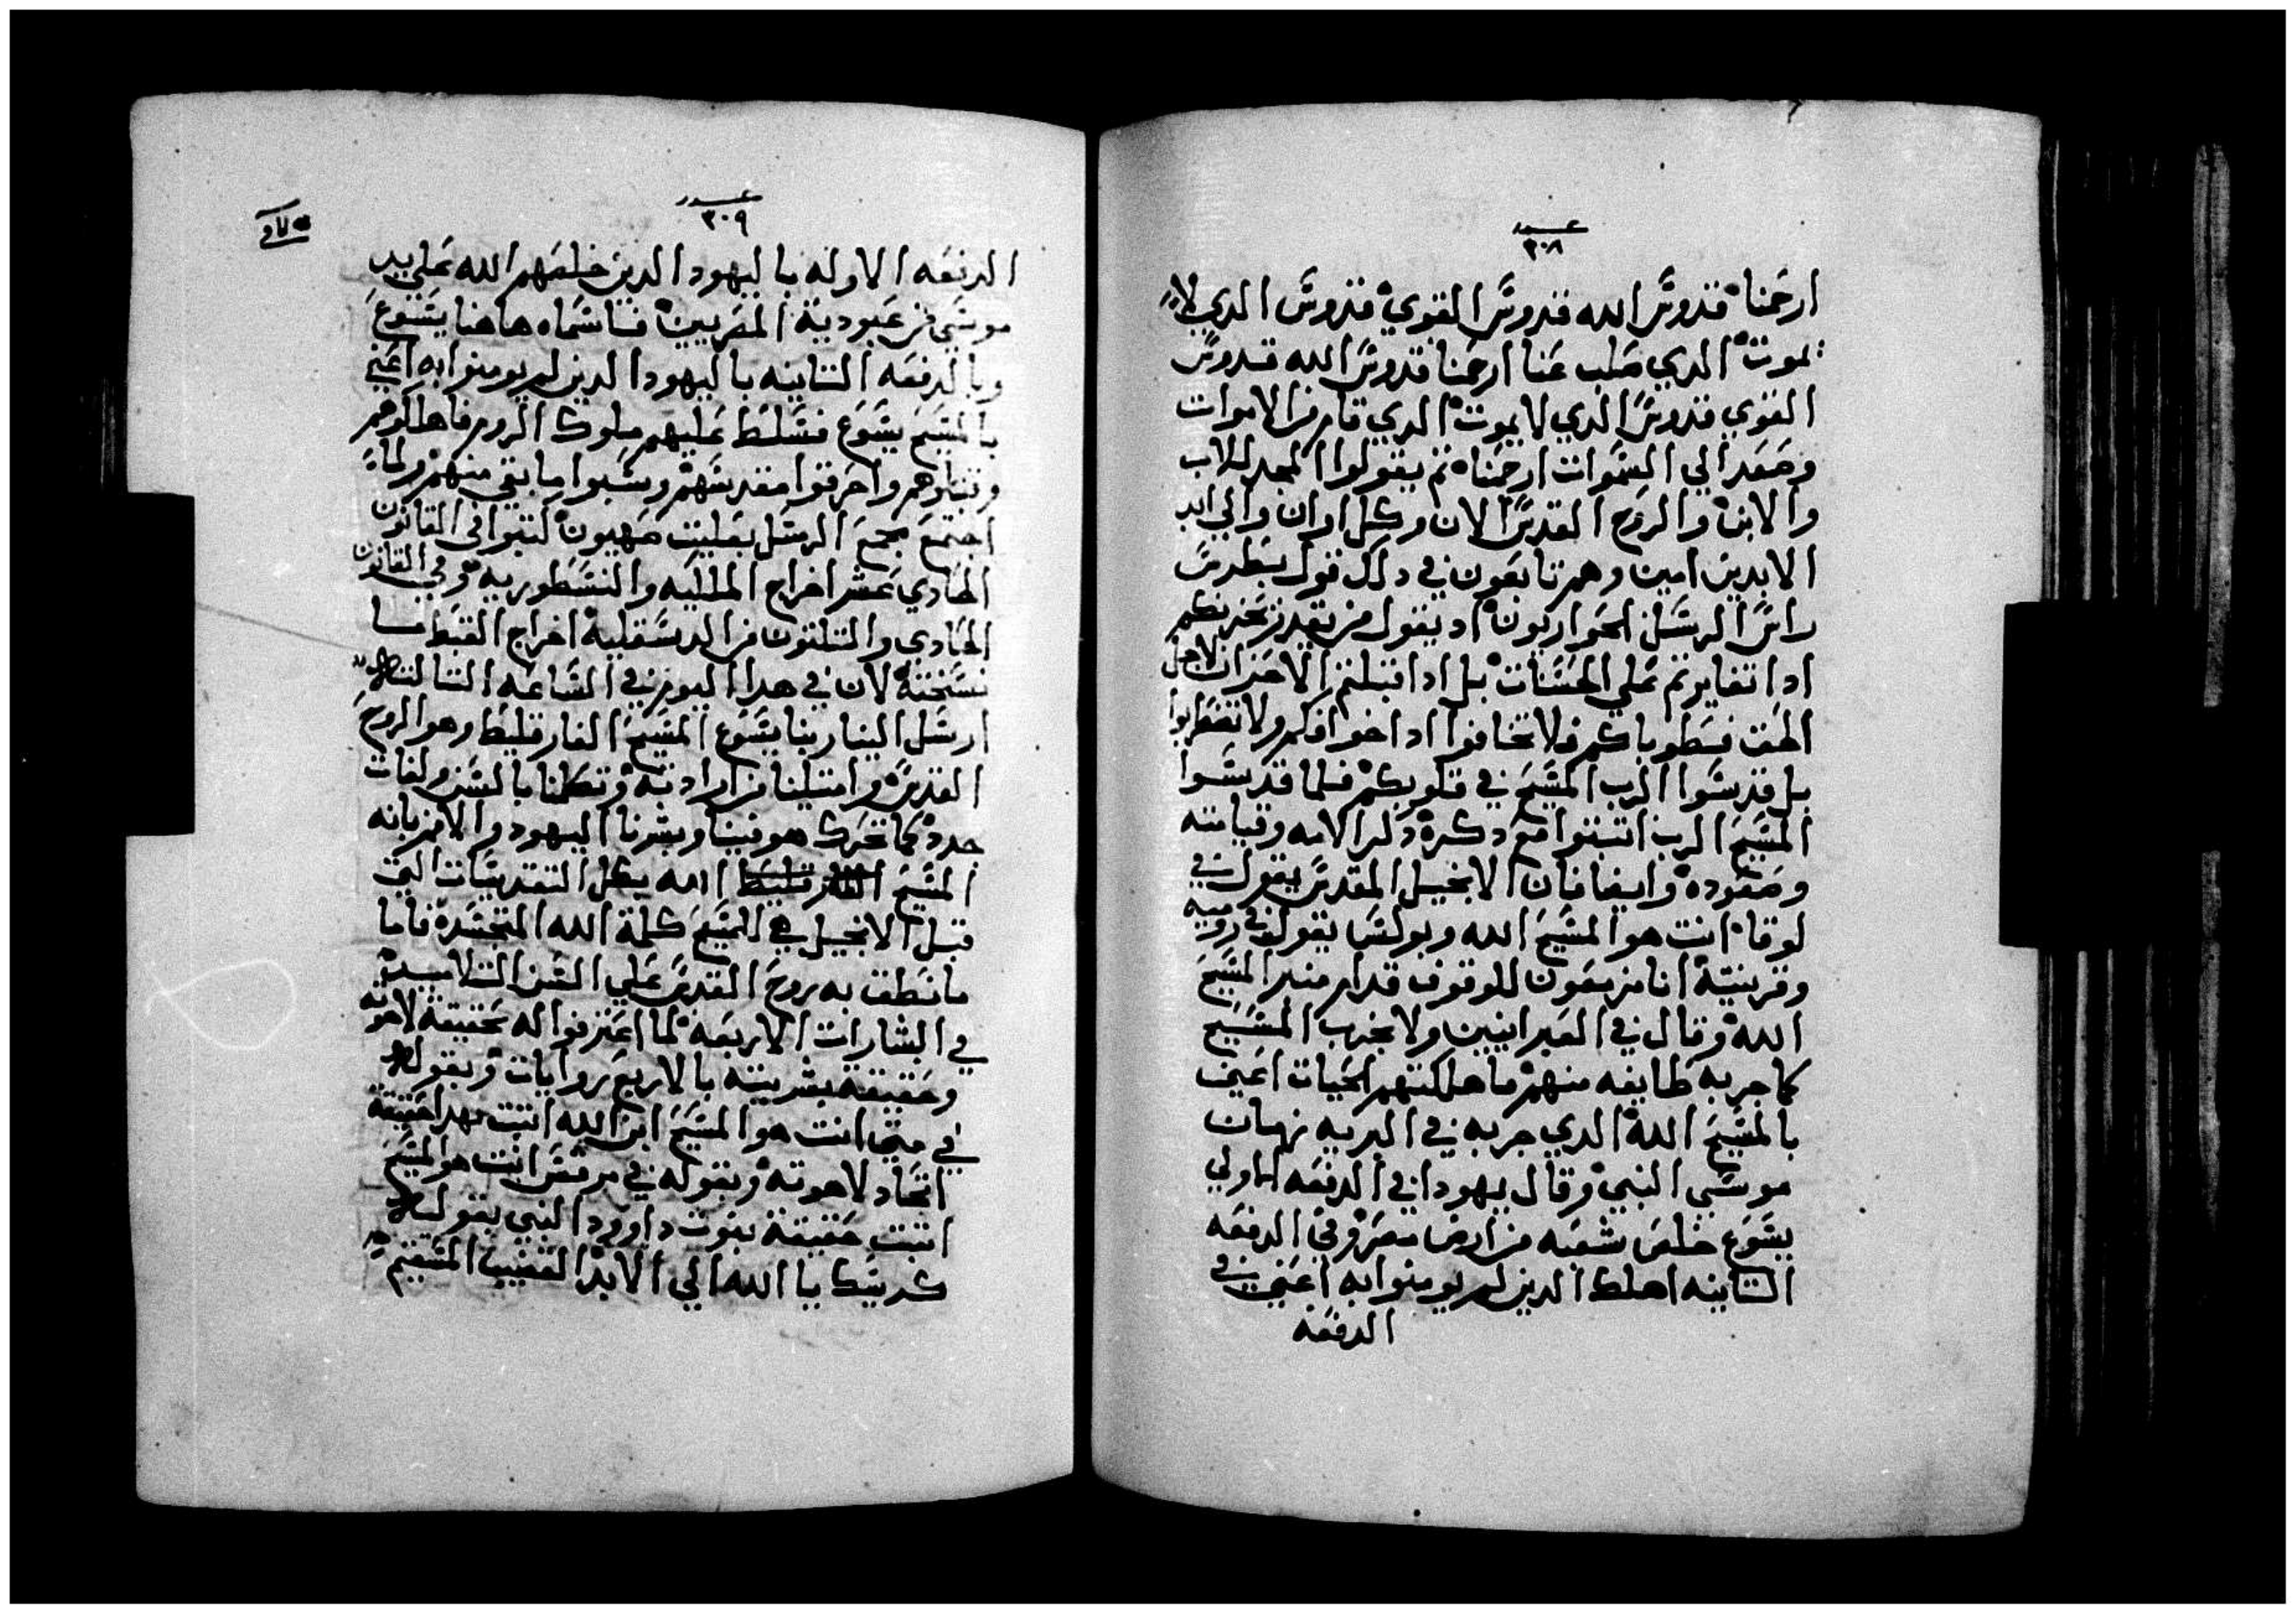 عدد
٣٠٨
ارحمنا قدوس الله قدوس القوي قدوس الدي لا
يموت الدي صلب عنا ارحمنا قدوس الله قدوس
القوي قدوس الدي لا يموت الدي قام من الاموات
وصعد الي السموات ارحمنا ثم يقولوا المجد للاب
والابن والروح القدس الان وكل اوان والي ابد
الابدين امين وهم تابعون في دلك قول بطرس
راس الرسل الحواريون اد يقول من يقدر يحزنكم
ادا تغايرتم علي الحسنات بل ادا قبلتم الاحزان لاجل
الحق فطوباكم فلا تخافوا ادا خوافكم ولا تضطربوا
بل قدسوا الرب المسيح في قلوبكم فلما قدسوا
المسيح الرب اتبتوا مع دكره دكر الامه وقيامته
وصعوده وايضا فان الانجيل المقدس يقول في
لوقا انت هو المسيح الله وبولس يقول في رومية
وقرنتية انا مزمعون للوقوف قدام منبر المسيح
الله وقال في العبرانيين ولا نجرب المسيح
كما جربه طايفه منهم فاهلكتهم الحيات اعني
بالمسيح الله الدي جربه في البريه زمان
موسي النبي وقال يهودا في الدفعه الاولي
يشوع خلص شعبه من ارض مصر وفي الدفعه
التانيه اهلك الدين لم يومنوا به اعني في
الدفعه
عدد
٣٠٩
الدفعه الاوله باليهود الدين خلصهم الله علي يد
موسي من عبودية المصريين فاسماه هاهنا يشوع
وبالدفعه التانيه باليهود الدين لم يومنوا به اعني
بالمسيح يشوع فسلط عليهم ملوك الروم فاهلكوهم
وقتلوهم واحرقوا مقدسهم وسبوا ما بقي منهم ولما
اجتمع مجمع الرسل بعليت صهيون كتبوا في القانون
الحادي عشر اخراج الملكيه والنسطوريه وفي القانون
الحادي والتلتون من الدسقلية اخراج القبط
نسخته لان في هدا اليوم في الساعه التالته
ارسل الينا ربنا يشوع المسيح الفارقليط وهو الروح
القدس وامتلينا من ارادته وتكلمنا بالسن ولغات
جدد كما تحرك هو فينا وبشرنا اليهود والامم بانه
المسيح الله بكل التقديسات التي
قبل الانجيل هي للمسيح كلمة الله المتجسدة فاما
ما نطق به روح القدس علي السن التلاميد
في البشارات الاربعه لما اعترفوا له بحقيقة لاهوته
وحقيقة بشريته بالاربع روايات وبقوله
في متي انت هو المسيح ابن الله اتبت بهدا حقيقة
اتحاد لاهوته وبقوله في مرقس انت هو المسيح
اتبت حقيقة نبوت داوود النبي بقوله
كرسيك يا الله الي الابد القضيب المستقيم